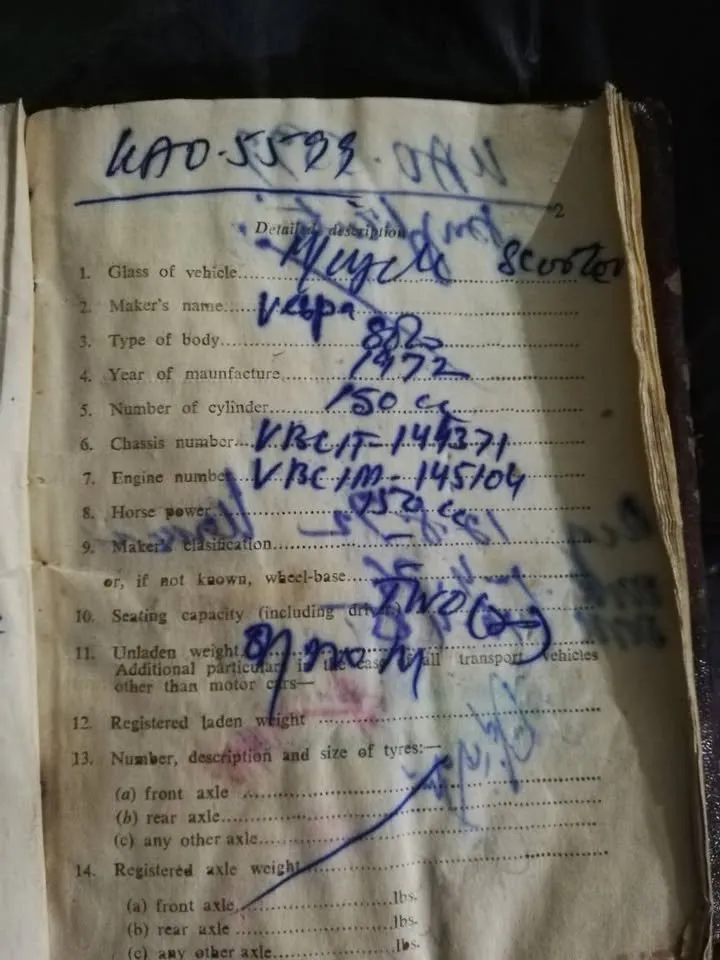 KAO-5599
2
Detailed description
1. Glass of vehicle........ M/cycle Scooter
2. Maker's name..... Vespa
3. Type of body............
4. Year of maunfacture........ 1972
5. Number of cylinder........ 150 cc
6. Chassis number.... VBC1T-144371
7. Engine number VBC1M-145104
8. Horse power........ 150 cc
9. Maker's clasification............
or, if not known, wheel-base....
10. Seating capacity (including driver) TWO
11. Unladen weight
Additional particulars in the case of all transport vehicles
other than motor cars—
12. Registered laden weight ............
13. Number, description and size of tyres:—
(a) front axle ............
(b) rear axle............
(c) any other axle............
14. Registered axle weight............
(a) front axle............lbs.
(b) rear axle ............lbs.
(c) any other axle............lbs.